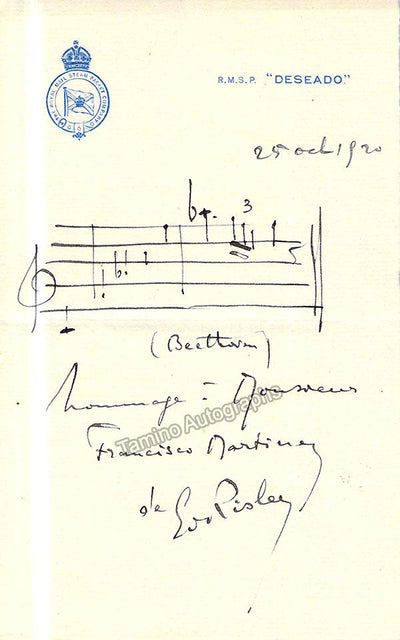 THE ROYAL MAIL STEAM PACKET COMPANY
R.M.S.P. "DESEADO."
25 oct 1920
3
(Beethoven)
hommage à Monsieur
Francisco Martinez
de Risler
Tamino Autographs